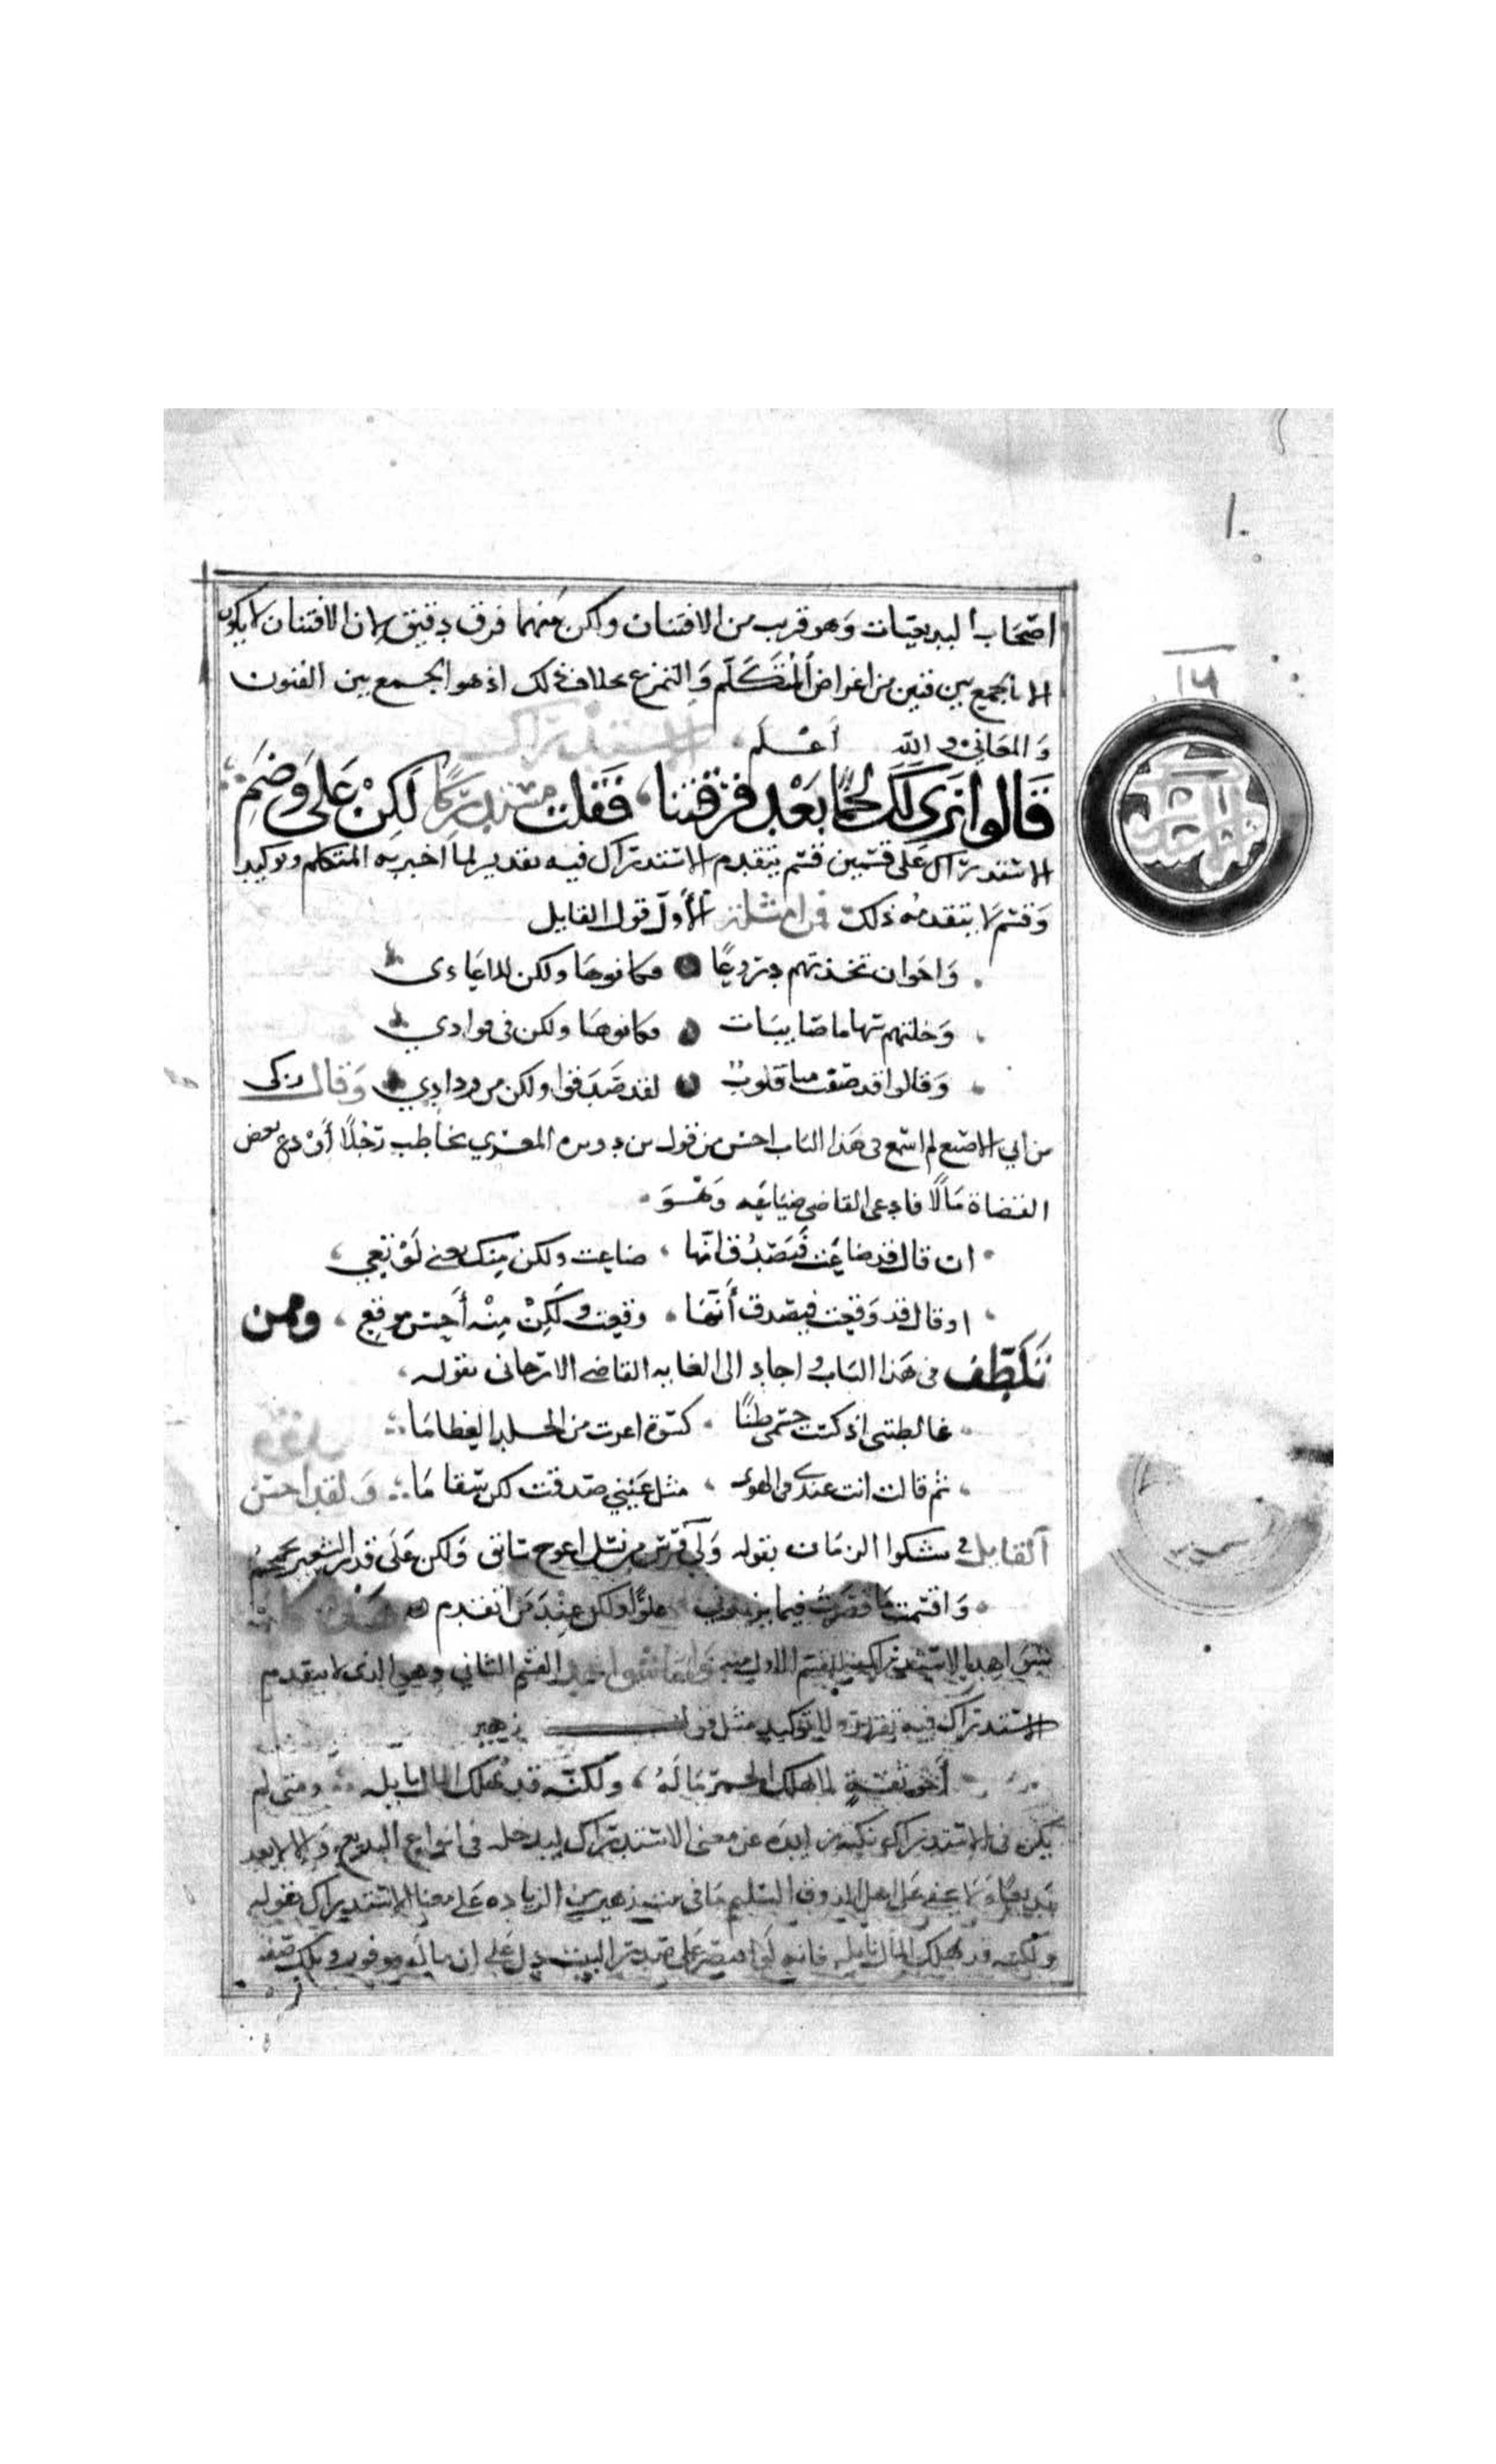 ١٠
١٤
اصحاب البديعيات وهو قريب من الافتنان ولكن بينهما فرق دقيق لان الافتنان لا يكون
الا بالجمع بين فنين من اغراض المتكلم والتمزيج بخلاف ذلك اذ هو الجمع بين الفنون
والمعاني والله اعلم الاستدراك
قَالوا نَرَى لَكَ لحمًا بَعْد فرقتنا، فَقلت مستدركًا لكِنْ عَلى وَضَمِ
الاستدراك على قسمين قسم يتقدم الاستدراك فيه تقدير لما اخبر به المتكلم وتوكيد
وقسم لا يتقدمه ذلك فمن امثلة الاول قول القايل
واخوان تخذتهم دروعًا فكانوها ولكن للاعادي
وخلتهم سهاما صايبات فكانوها ولكن في فوادي
وقالوا قد صفت منا قلوب لقد صدقوا ولكن من ودادي وقال زكي
بن ابي الاصبع لم اسمع في هذا الباب احسن من قول بن دويده المغربي يخاطب رجلًا أودع بعض
القضاة مالًا فادعى القاضي ضياعه وهو
ان قال قد ضاعت فيصدق انها، ضاعت ولكن منك يعني لو تعي،
او قال قد وقعت فيصدق أنها، وقعت ولكن منه أحسن موقع، وممن
تلطف في هذا الباب واجاد الى الغايه القاضي الارجاني بقوله،
غالطتني اذ كست جسمي ضنًا كسوة اعرت من الجلد العظاما
ثم قالت انت عندي في الهوى، مثل عيني صدقت لكن سقاما ولقد احسن
القايل في شكوا الزمان بقوله ولي فرس من نسل اعوج سابق ولكن على قدر الشعير يحمحم
واقسمت ما قصرت فيما يزيدني علوًا ولكن عند من اتقدم هذه
شواهد الاستدراك القسم الاول منه واما شواهد القسم الثاني وهو الذي لا يتقدم
الاستدراك فيه تقرير ولا توكيد مثل قول زهير
أخو ثقة لا يهلك الخمر ماله، ولكنه قد يهلك المال نايله ومتى لم
يكن في الاستدراك نكته زايده عن معنى الاستدراك ليدخله في انواع البديع والا لا يعد
بديعا ولا يخفى على اهل الذوق السليم ما في بيت زهير من الزياده على معنا الاستدراك بقوله
ولكنه قد يهلك المال نايله فانه لو اقتصر على صدر البيت دل على ان ماله موفور وتلك صفه